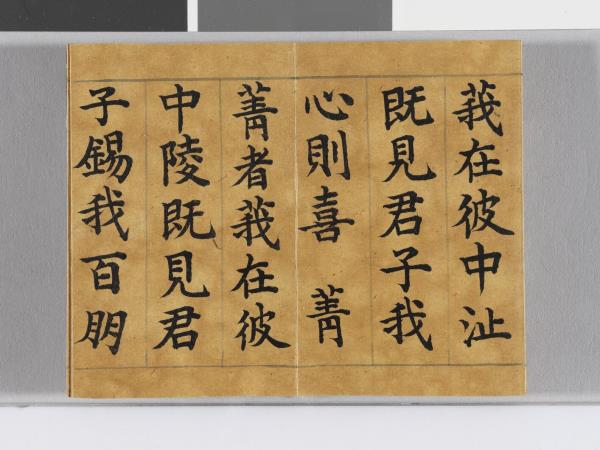 莪在彼中沚
既見君子我
心則喜　菁
菁者莪在彼
中陵既見君
子錫我百朋